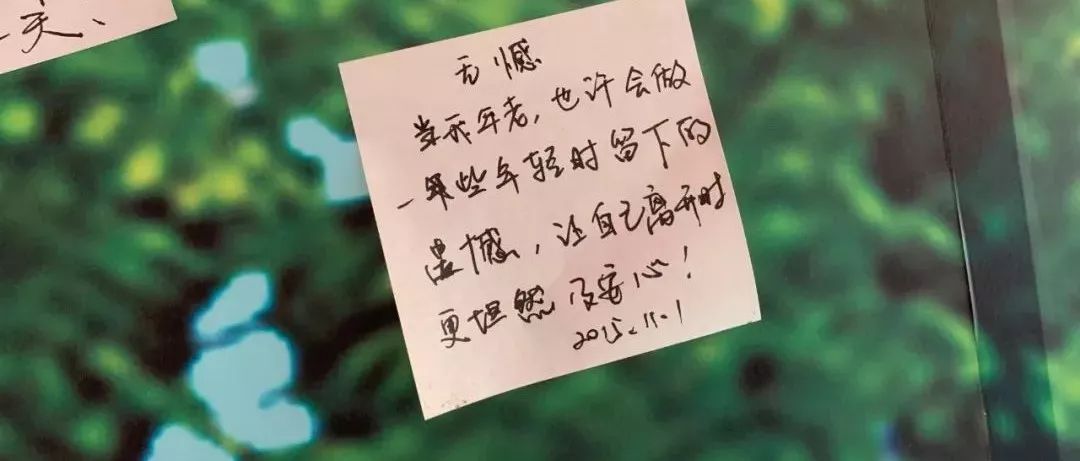 天、
无憾
当我年老,也许会做
一些年轻时留下的
遗憾,让自己离开时
更坦然及安心!
2015.11.1